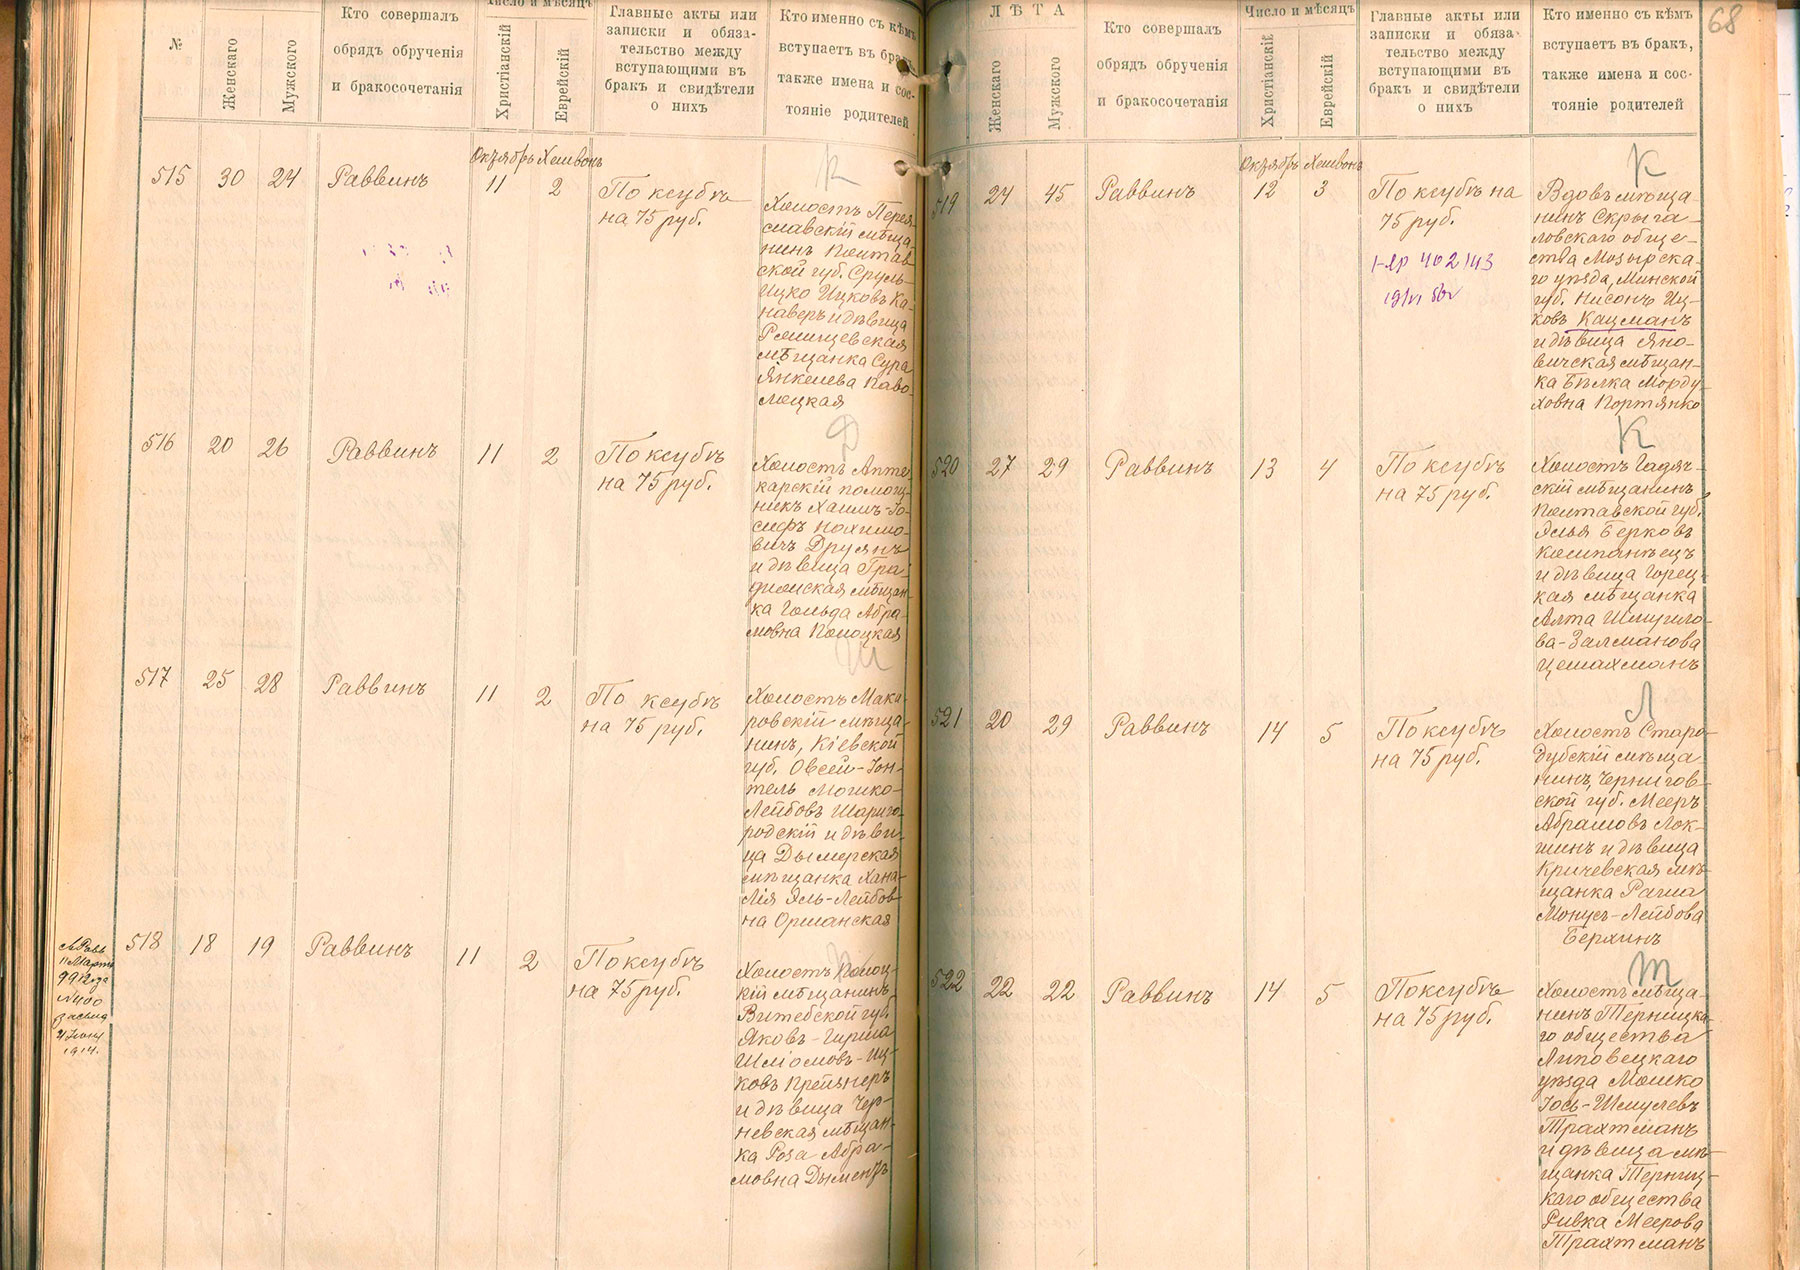 68
№
Женскаго
Мужского
Кто совершалъ
обрядъ обрученія
и бракосочетанія
Число и мѣсяцъ
Христіанскій
Еврейскій
Главные акты или
записки и обяза-
тельство между
вступающими въ
бракъ и свидѣтели
о нихъ
Кто именно съ кѣмъ
вступаетъ въ бракъ,
также имена и сос-
тояніе родителей
515
30
24
Раввинъ
Октябрь
11
Хешвонъ
2
По ксубѣ
на 75 руб.
К
Холостъ Перея-
славскій мѣща-
нинъ Полтав-
ской губ. Сруль-
Ицко Ицковъ Ка-
наверъ и дѣвица
Ржищевская
мѣщанка Сура
Янкелева Паво-
лоцкая
516
20
26
Раввинъ
11
2
По ксубѣ
на 75 руб.
Д
Холостъ Апте-
карскій помощ-
никъ Хаимъ-Іо-
сифъ Нохимо-
вичъ Друянъ
и дѣвица Гра-
дижская мѣщан-
ка Гольда Абра-
мовна Полоцкая
517
25
28
Раввинъ
11
2
По ксубѣ
на 75 руб.
Ш
Холостъ Мака-
ровскій мѣща-
нинъ, Кіевской
губ. Овсей-Іон-
тель Мошко-
Лейбовъ Шариго-
родскій и дѣви-
ца Дымерская
мѣщанка Хана-
Лія Эль-Лейбов-
на Оршанская
11 Марта
1914.
518
18
19
Раввинъ
11
2
По ксубѣ
на 75 руб.
Холостъ Полоц-
кій мѣщанинъ
Витебской губ.
Яковъ-Гирша
Шліомовъ-Иц-
ковъ Прейзнеръ
и дѣвица Чер-
невская мѣщан-
ка Роза Абра-
мовна Дыментъ
ЛѢТА
Женскаго
Мужского
Кто совершалъ
обрядъ обрученія
и бракосочетанія
Число и мѣсяцъ
Христіанскій
Еврейскій
Главные акты или
записки и обяза-
тельство между
вступающими въ
бракъ и свидѣтели
о нихъ
Кто именно съ кѣмъ
вступаетъ въ бракъ,
также имена и сос-
тояніе родителей
519
24
45
Раввинъ
Октябрь
12
Хешвонъ
3
По ксубѣ на
75 руб.
К
Вдовъ мѣща-
нинъ Скрыга-
ловскаго обще-
ства Мозырска-
го уѣзда, Минской
губ. Нисонъ Иц-
ковъ Кацманъ
и дѣвица Яно-
вичская мѣщан-
ка Бѣлка Морду-
ховна Портянко
520
27
29
Раввинъ
13
4
По ксубѣ
на 75 руб.
К
Холостъ Гадяч-
скій мѣщанинъ
Полтавской губ.
Элья Берковъ
Компанѣецъ
и дѣвица Горец-
кая мѣщанка
Алта Шмуило-
ва-Залманова
Цемахманъ
521
20
29
Раввинъ
14
5
По ксубѣ
на 75 руб.
Л
Холостъ Старо-
дубскій мѣща
нинъ, Чернигов-
ской губ. Мееръ
Абрамовъ Лок-
шинъ и дѣвица
Кричевская мѣ-
щанка Раша
Монусъ-Лейбова
Берхинъ
522
22
22
Раввинъ
14
5
По ксубѣ
на 75 руб.
Т
Холостъ мѣща-
нинъ Терницка-
го общества
Липовецкаго
уѣзда Мошко
Іось-Шмулевъ
Трахтманъ
и дѣвица мѣ-
щанка Терниц-
каго общества
Ривка Меерова
Трахтманъ